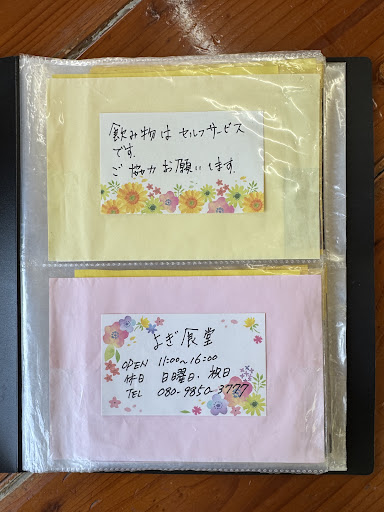 飲み物は セルフサービス
です.
ご協力お願いします.
よぎ食堂
OPEN 11:00~16:00
休日 日曜日、祝日
TEL 080-9850-3727